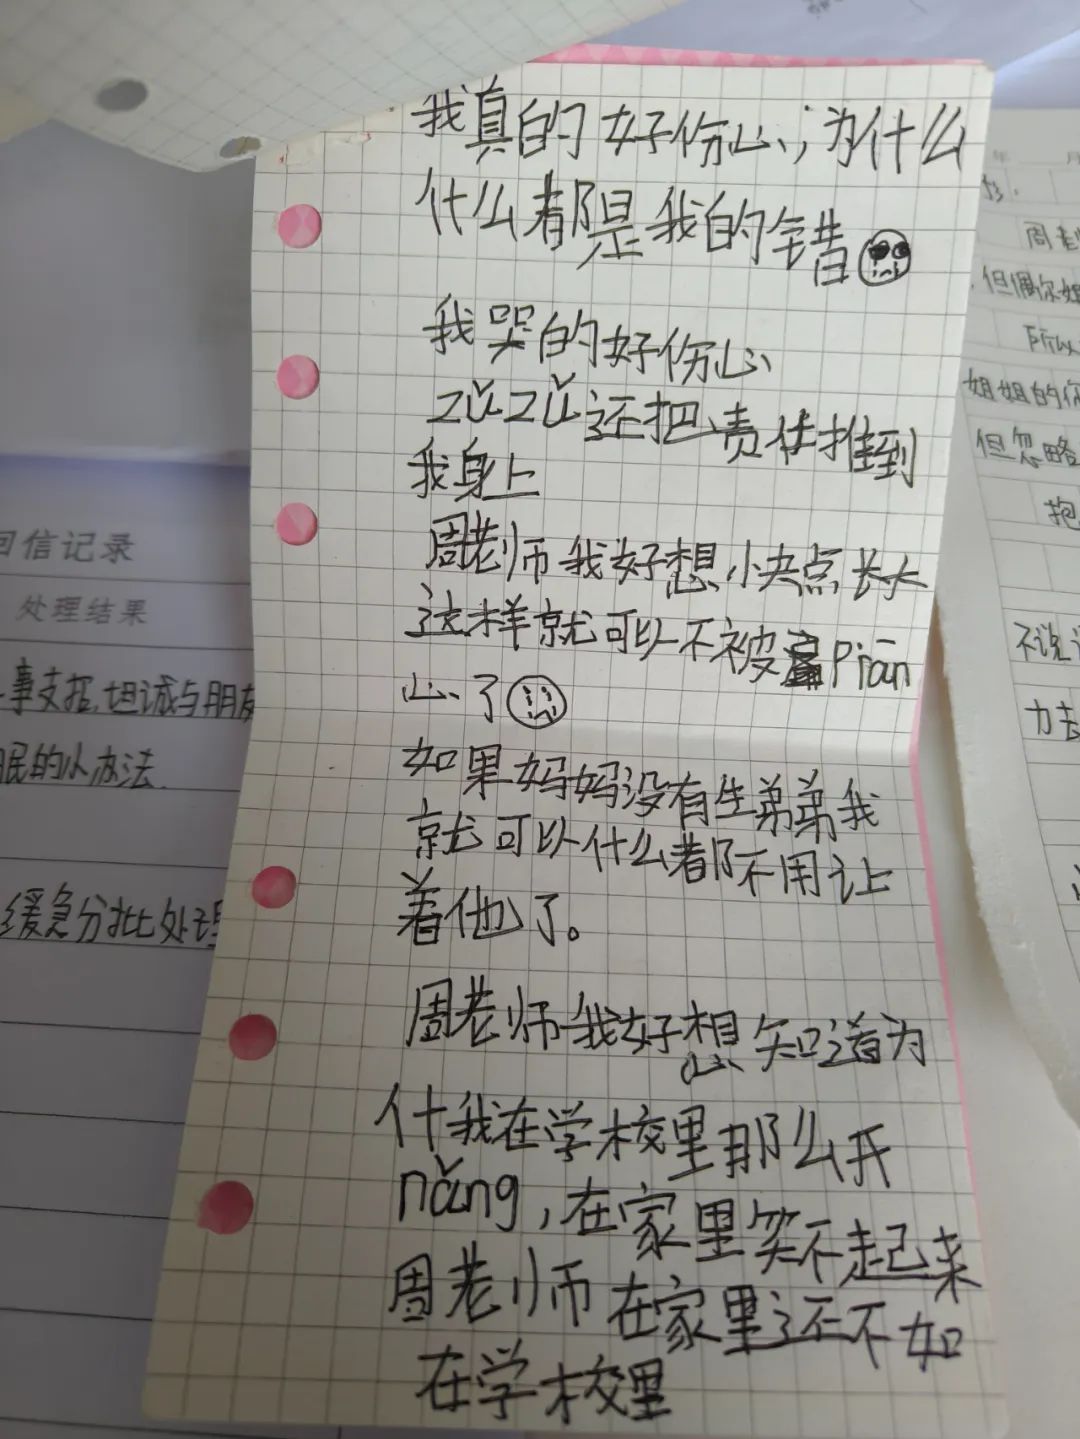 我真的好伤心,为什么
什么都是我的错
我哭的好伤心
zǔzǔ还把责任推到
我身上
周老师我好想小夬点长大
这样就可以不被 piān
心了
如果妈妈没有生弟弟我
就可以什么都不用让
着他了。
周老师我好想知道为
什我在学校里那么开
nǎng,在家里笑不起来
周老师在家里还不如
在学校里
回信记录
处理结果
事支招,坦诚与朋友
眠的小办法.
缓急分批处理
年 月
周老
但偶尔姐
所以
姐姐的你
但忽略
抱
不说
力去